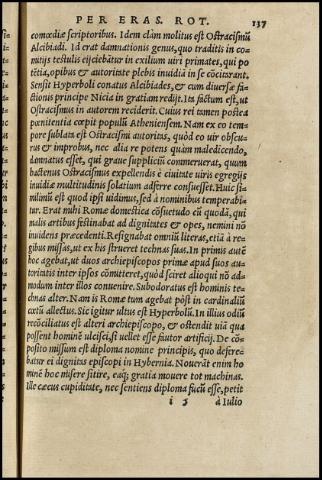 PER ERAS. ROT. 137
comœdiæ scriptoribus. Idem clam molitus est Ostracismũ
Alcibiadi. Id erat damnationis genus, quo traditis in co-
mitijs testulis eijciebãtur in exilium uiri primates, qui po
tẽtia, opibus & autoritate plebis inuidiã in se cõcitarant.
Sensit Hyperboli conatus Alcibiades, & cum diuersæ fa-
ctionis principe Nicia in gratiam redijt. Ita factum est, ut
Ostracismus in autorem reciderit. Cuius rei tamen postea
pœnitentia cœpit populũ Atheniensem. Nam ex eo tem-
pore sublata est Ostracismi autoritas, quòd eo uir obscu-
rus & improbus, nec alia re potens quàm maledicendo,
damnatus esset, qui graue suppliciũ commeruerat, quum
hactenus Ostracismus expellendis è ciuitate uiris egregijs
inuidiæ multitudinis solatium adferre consuesset. Huic si-
milimũ est quod ipsi uidimus, sed à nominibus temperabi-
tur. Erat mihi Romæ domestica cõsuetudo cũ quodã, qui
malis artibus festinabat ad dignitates & opes, nemini nõ
inuidens præcedenti. Resignabat omniũ literas, etiã à re-
gibus missas, ut ex his strueret technas suas. In primis autẽ
hoc agebat, ut duos archiepiscopos primæ apud suos au-
toritatis inter ipsos cõmitteret, quòd sciret alio qui nõ ad-
modum inter illos conuenire. Subodoratus est hominis te-
chnas alter. Nam is Romæ tum agebat pòst in cardinaliũ
cœtũ allectus. Sic igitur ultus est Hyperbolũ. In illius odiũ
recõciliatus est alteri archiepiscopo, & ostendit uiã qua
possent hominẽ ulcisci, si uellet esse fautor artificij. De cõ-
posito missum est diploma nomine principis, quo defere-
batur ei dignitas episcopi in Hybernia. Nouerãt enim ho
minẽ hoc misere sitire, eaq; gratia mouere tot machinas.
Ille cæcus cupiditate, nec sentiens diploma fucũ esse, petit
i 5 à Iulio